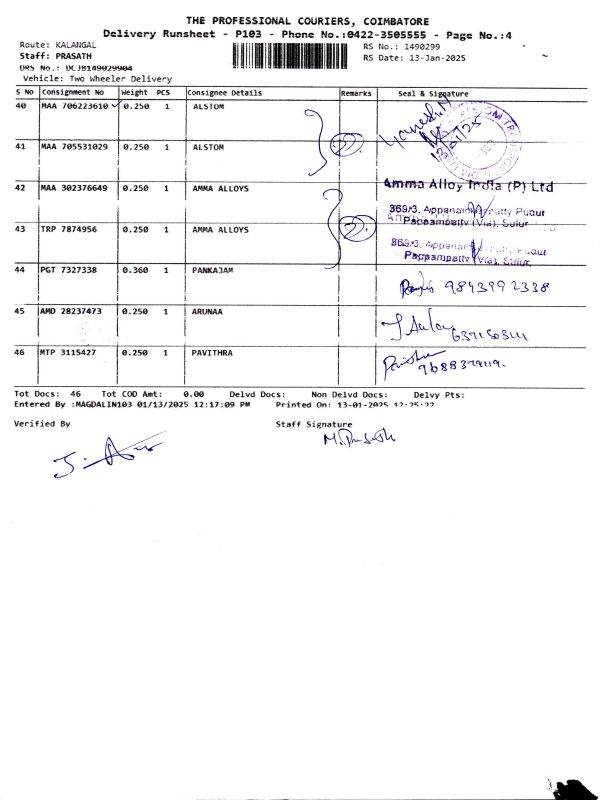 THE PROFESSIONAL COURIERS, COIMBATORE
Delivery Runsheet - P103 - Phone No.:0422-3505555 - Page No.:4
Route: KALANGAL
RS No.: 1490299
Staff: PRASATH
RS Date: 13-Jan-2025
DRS No.: DCJB149029904
Vehicle: Two Wheeler Delivery
S No Consignment No Weight PCS Consignee Details Remarks Seal & Signature
40 MAA 706223610 0.250 1 ALSTOM
41 MAA 705531029 0.250 1 ALSTOM
42 MAA 302376649 0.250 1 AMMA ALLOYS Amma Alloy India (P) Ltd
43 TRP 7874956 0.250 1 AMMA ALLOYS
44 PGT 7327338 0.360 1 PANKAJAM 9843992338
45 AMD 28237473 0.250 1 ARUNAA
46 MTP 3115427 0.250 1 PAVITHRA
Tot Docs: 46 Tot COD Amt: 0.00 Delvd Docs: Non Delvd Docs: Delvy Pts:
Entered By :MAGDALIN103 01/13/2025 12:17:09 PM Printed On: 13-01-2025 12:25:22
Verified By Staff Signature
M. Prasath